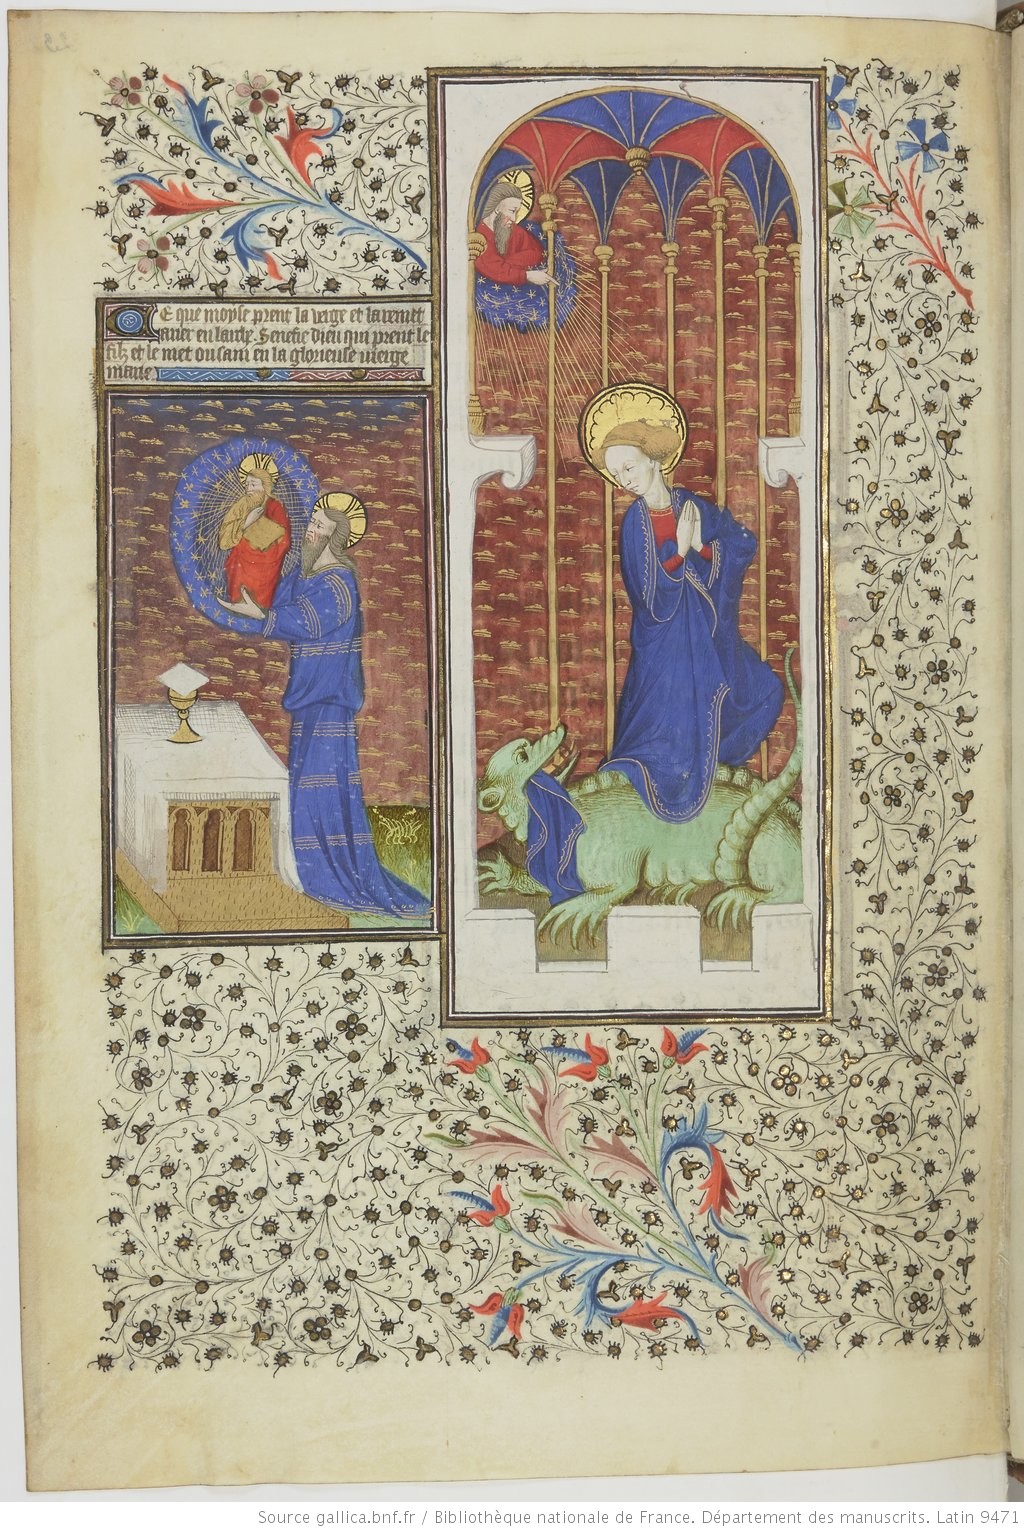 Ce que moyse prent la verge et la remet
arier en larche. Senefie dieu qui prent le
filz et le met ou sain en la glorieuse vierge
marie
Source gallica.bnf.fr / Bibliothèque nationale de France. Département des manuscrits. Latin 9471